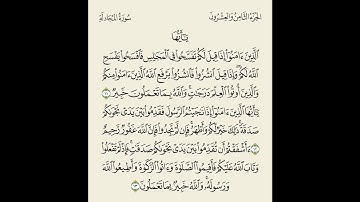 الجزء الثامن والعشرون
سورة المجادلة
يَٰٓأَيُّهَا
ٱلَّذِينَ ءَامَنُوٓا۟ إِذَا قِيلَ لَكُمْ تَفَسَّحُوا۟ فِى ٱلْمَجَٰلِسِ فَٱفْسَحُوا۟ يَفْسَحِ
ٱللَّهُ لَكُمْ وَإِذَا قِيلَ ٱنشُزُوا۟ فَٱنشُزُوا۟ يَرْفَعِ ٱللَّهُ ٱلَّذِينَ ءَامَنُوا۟ مِنكُمْ
وَٱلَّذِينَ أُوتُوا۟ ٱلْعِلْمَ دَرَجَٰتٍ وَٱللَّهُ بِمَا تَعْمَلُونَ خَبِيرٌ ١١
يَٰٓأَيُّهَا ٱلَّذِينَ ءَامَنُوٓا۟ إِذَا نَٰجَيْتُمُ ٱلرَّسُولَ فَقَدِّمُوا۟ بَيْنَ يَدَىْ نَجْوَىٰكُمْ
صَدَقَةً ذَٰلِكَ خَيْرٌ لَّكُمْ وَأَطْهَرُ فَإِن لَّمْ تَجِدُوا۟ فَإِنَّ ٱللَّهَ غَفُورٌ رَّحِيمٌ
١٢ ءَأَشْفَقْتُمْ أَن تُقَدِّمُوا۟ بَيْنَ يَدَىْ نَجْوَىٰكُمْ صَدَقَٰتٍ فَإِذْ لَمْ تَفْعَلُوا۟
وَتَابَ ٱللَّهُ عَلَيْكُمْ فَأَقِيمُوا۟ ٱلصَّلَوٰةَ وَءَاتُوا۟ ٱلزَّكَوٰةَ وَأَطِيعُوا۟ ٱللَّهَ
وَرَسُولَهُۥ وَٱللَّهُ خَبِيرٌۢ بِمَا تَعْمَلُونَ ١٣